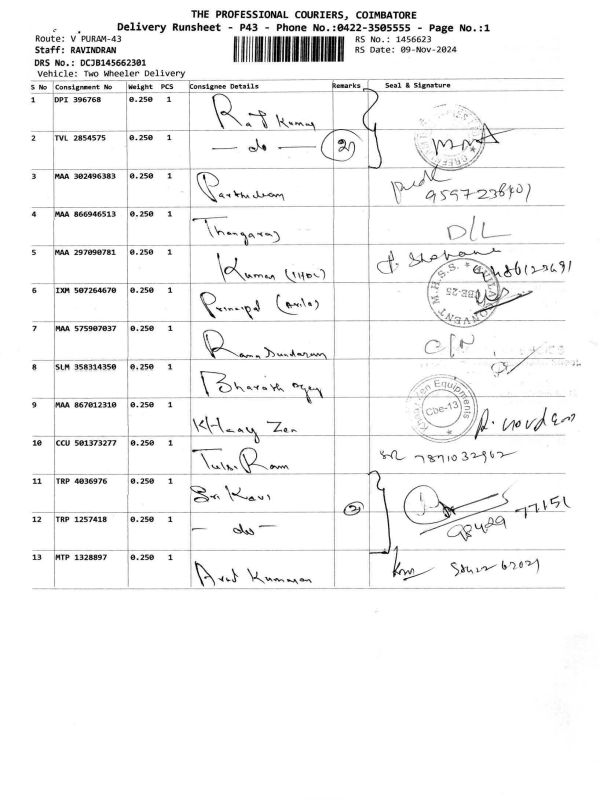 THE PROFESSIONAL COURIERS, COIMBATORE
Delivery Runsheet - P43 - Phone No.:0422-3505555 - Page No.:1
Route: V PURAM-43 RS No.: 1456623
Staff: RAVINDRAN RS Date: 09-Nov-2024
DRS No.: DCJB145662301
Vehicle: Two Wheeler Delivery
S No Consignment No Weight PCS Consignee Details Remarks Seal & Signature
1 DPI 396768 0.250 1 Raj Kumar
2 TVL 2854575 0.250 1 — do — 2
3 MAA 302496383 0.250 1 Parthiban
4 MAA 866946513 0.250 1 Thangaraj D/L
5 MAA 297090781 0.250 1 Kumar
6 IXM 507264670 0.250 1 Principal (Avila) CONVENT M.H.S.S. *
7 MAA 575907037 0.250 1 Rama Sundaram
8 SLM 358314350 0.250 1 Bharath
9 MAA 867012310 0.250 1 KHaay Zen Zen Equipments Cbe-13
10 CCU 501373277 0.250 1 Tulsi Ram 7871032962
11 TRP 4036976 0.250 1 Sri Kavi 2
12 TRP 1257418 0.250 1 — do — 98429 77151
13 MTP 1328897 0.250 1